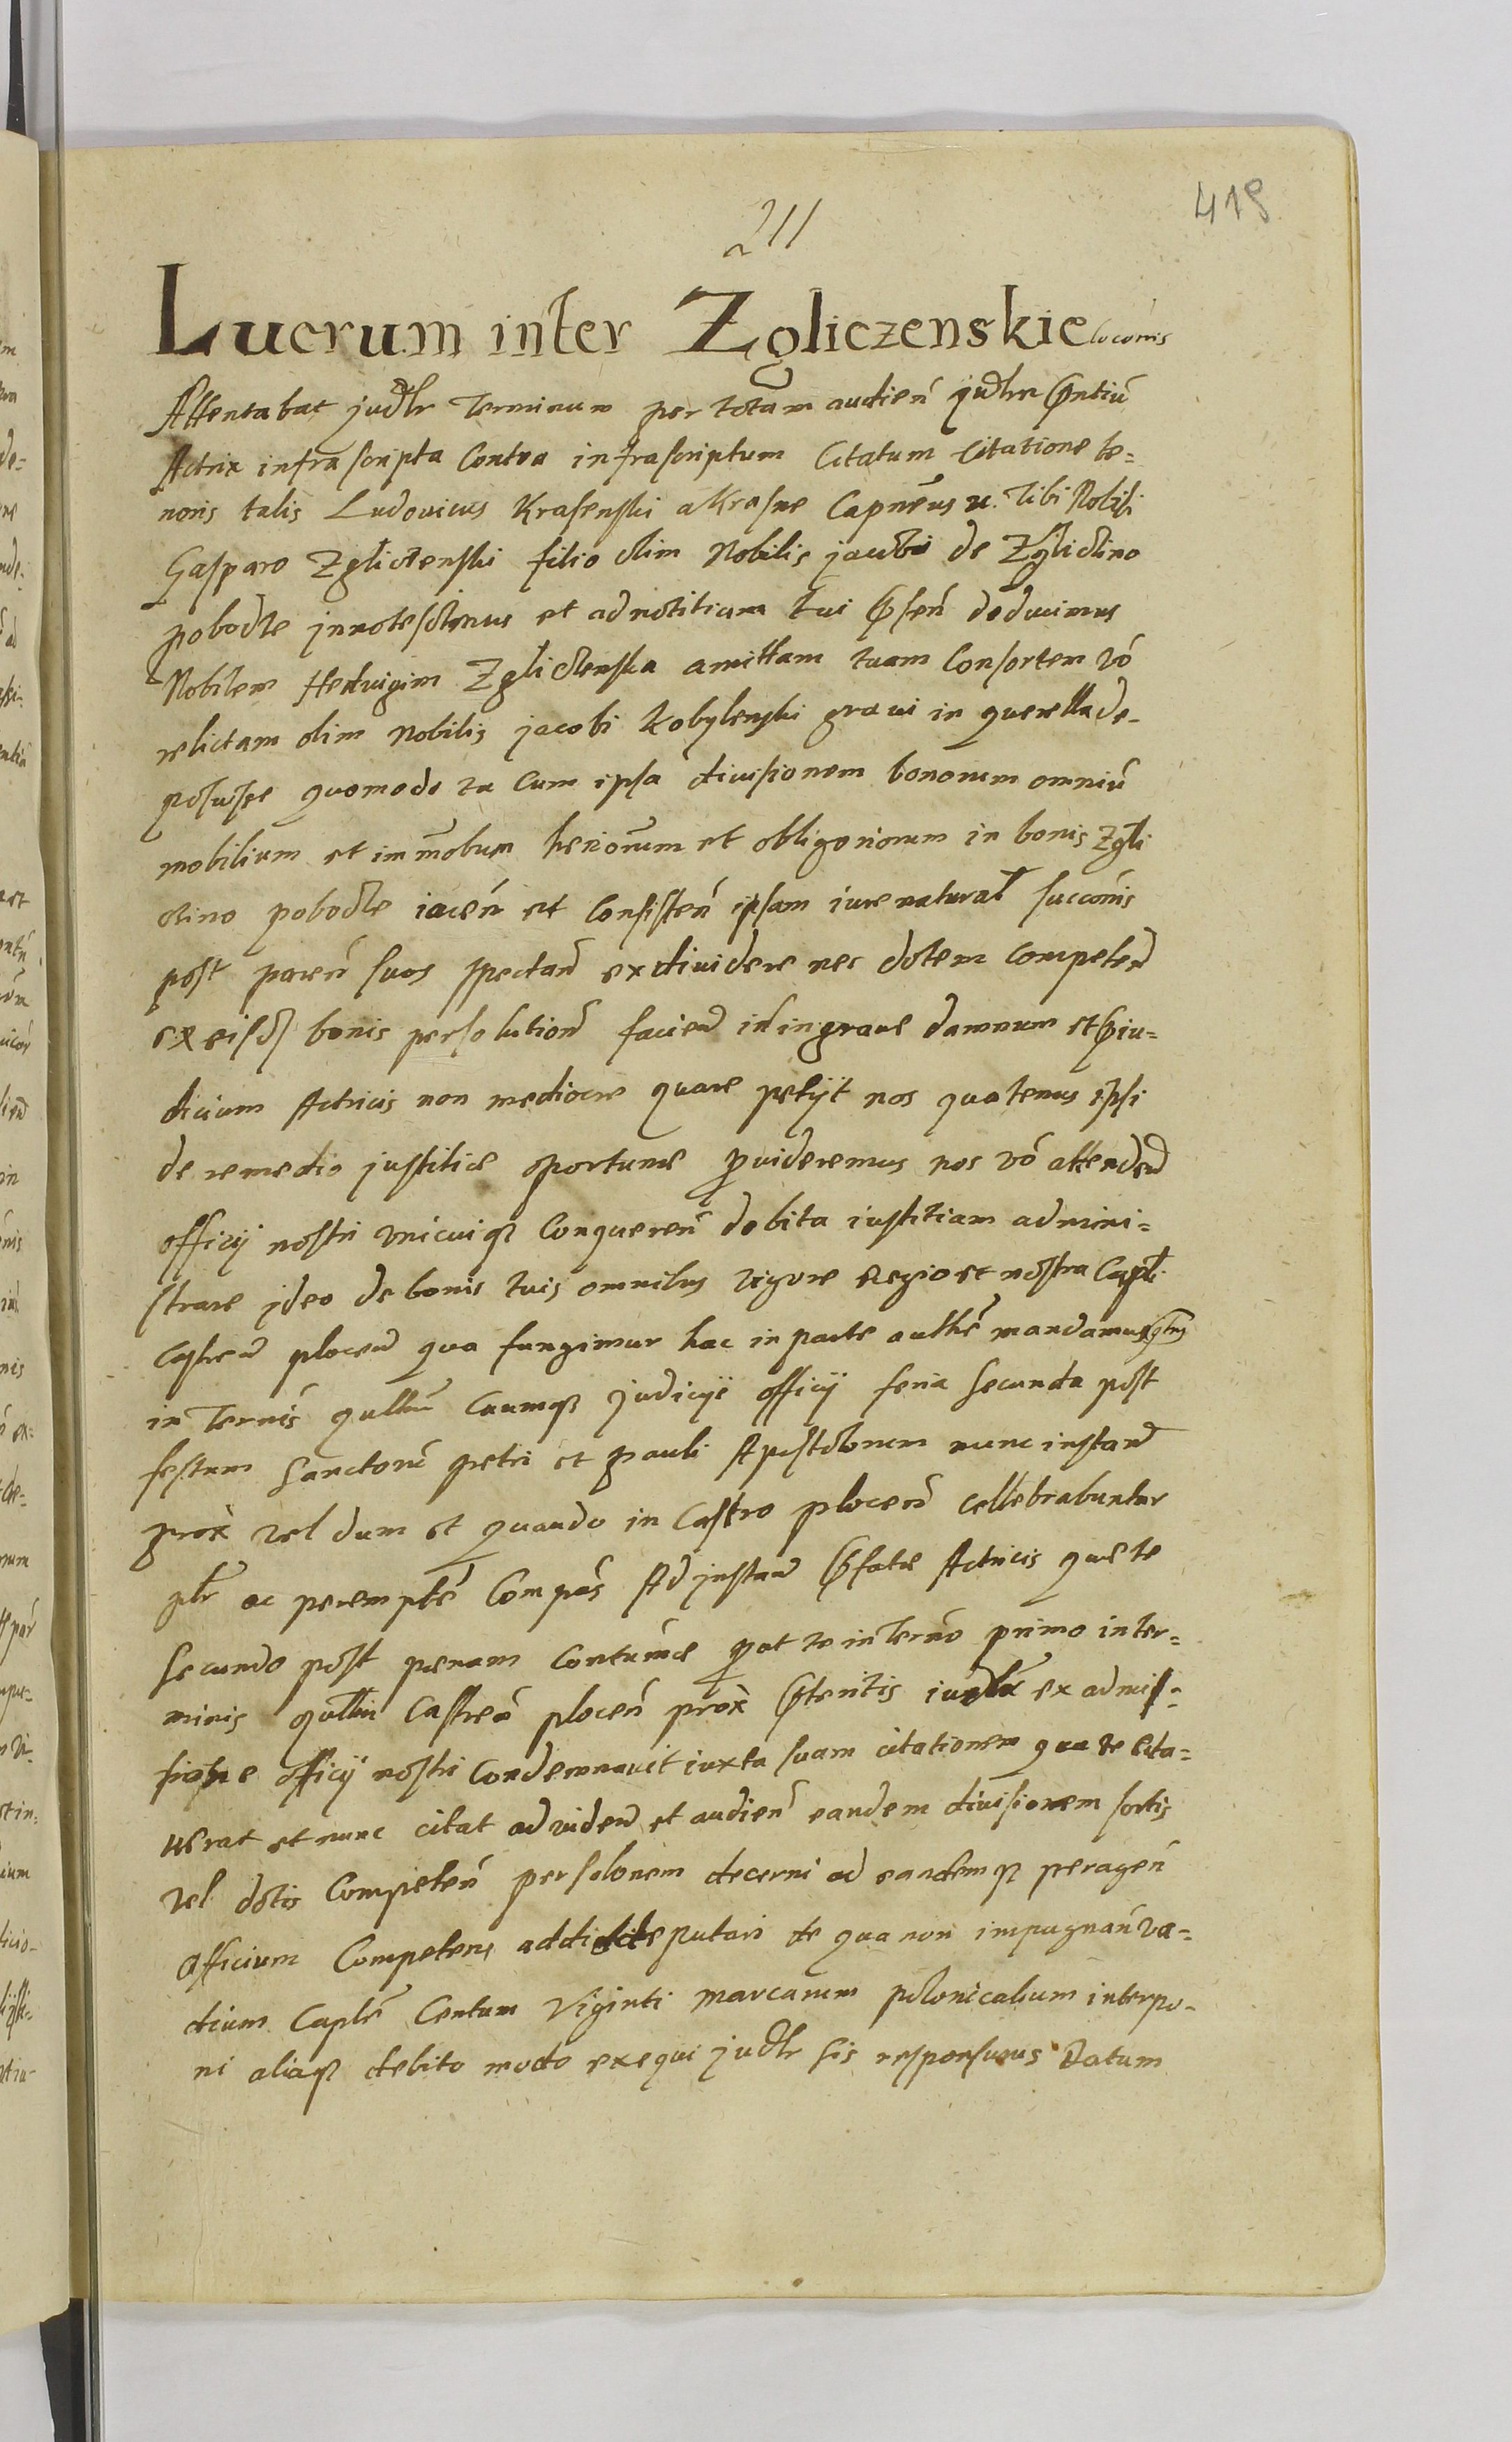 419
211
Lucrum inter Zgliczenskie
Attentabat judlr Terminum per totam audień judlrr pntiū
Actrix infrascripta Contra infrascriptum Citatum Citatione te=
noris talis Ludovicus Krasenski a Krasne Capneus Tibi Nobili
Gasparo Zgliczenski filio olim Nobilis jacobi de Zgliczino
pobodze jnnotescimus et ad notitiam tui psen deducimus
Nobilem Hedvigim Zgliczenska amittam tuam Consortem vō
relictam olim Nobilis jacobi Kobylenski gravi in querella de-
posuisse quomodo tu cum ipsa divisionem bonorum omniū
mobilium et immobum heriorum et obligorionum in bonis Zgli
czino pobodze iaceń et Consisteń ipsam iure natural succonis
post pareń suos spectań exdividere nec dotem competeń
ex eisd bonis persolutioń facień id in grave damnum et piu=
dicium Actricis non mediocre quare petijt nos quatenus ipsi
de remedio justitiæ oportunæ pvideremus nos vō attendeń
officij nostri unicuiq Conquereń debita iustitiam admini=
strare jdeo de bonis tuis omnibus vigore Regio et nostra Capli
Castreń ploceń qua fungimur hac in parte authe mandamus qtus
in Ternis qullm Caumq judicijs officij feria secunda post
festum Sanctorū petri et pauli Apostolorum nunc instań
prox vel dum et quando in Castro ploceń cellebrabuntur
plr ac perempte Compas Ad jnstań pfatæ Actricis quæ te
secundo post pœnam Contumæ put te in terno primo inter=
minis qullm Castreń ploceń prox pteritis iudlr ex admis=
sione officij nostri Condemnavit iuxta suam citationem qua te cita=
verat et nunc citat ad videń et audień eandem divisionem sortis
vel dotis Competeń persolonem decerni ad eandemq perageń
officium Competens addi deputari te qua non impugnań va=
dium Caple Centum Viginti marcarum polonicalium interpo-
ni aliaq debito modo exequi judlr sis responsurus Datum